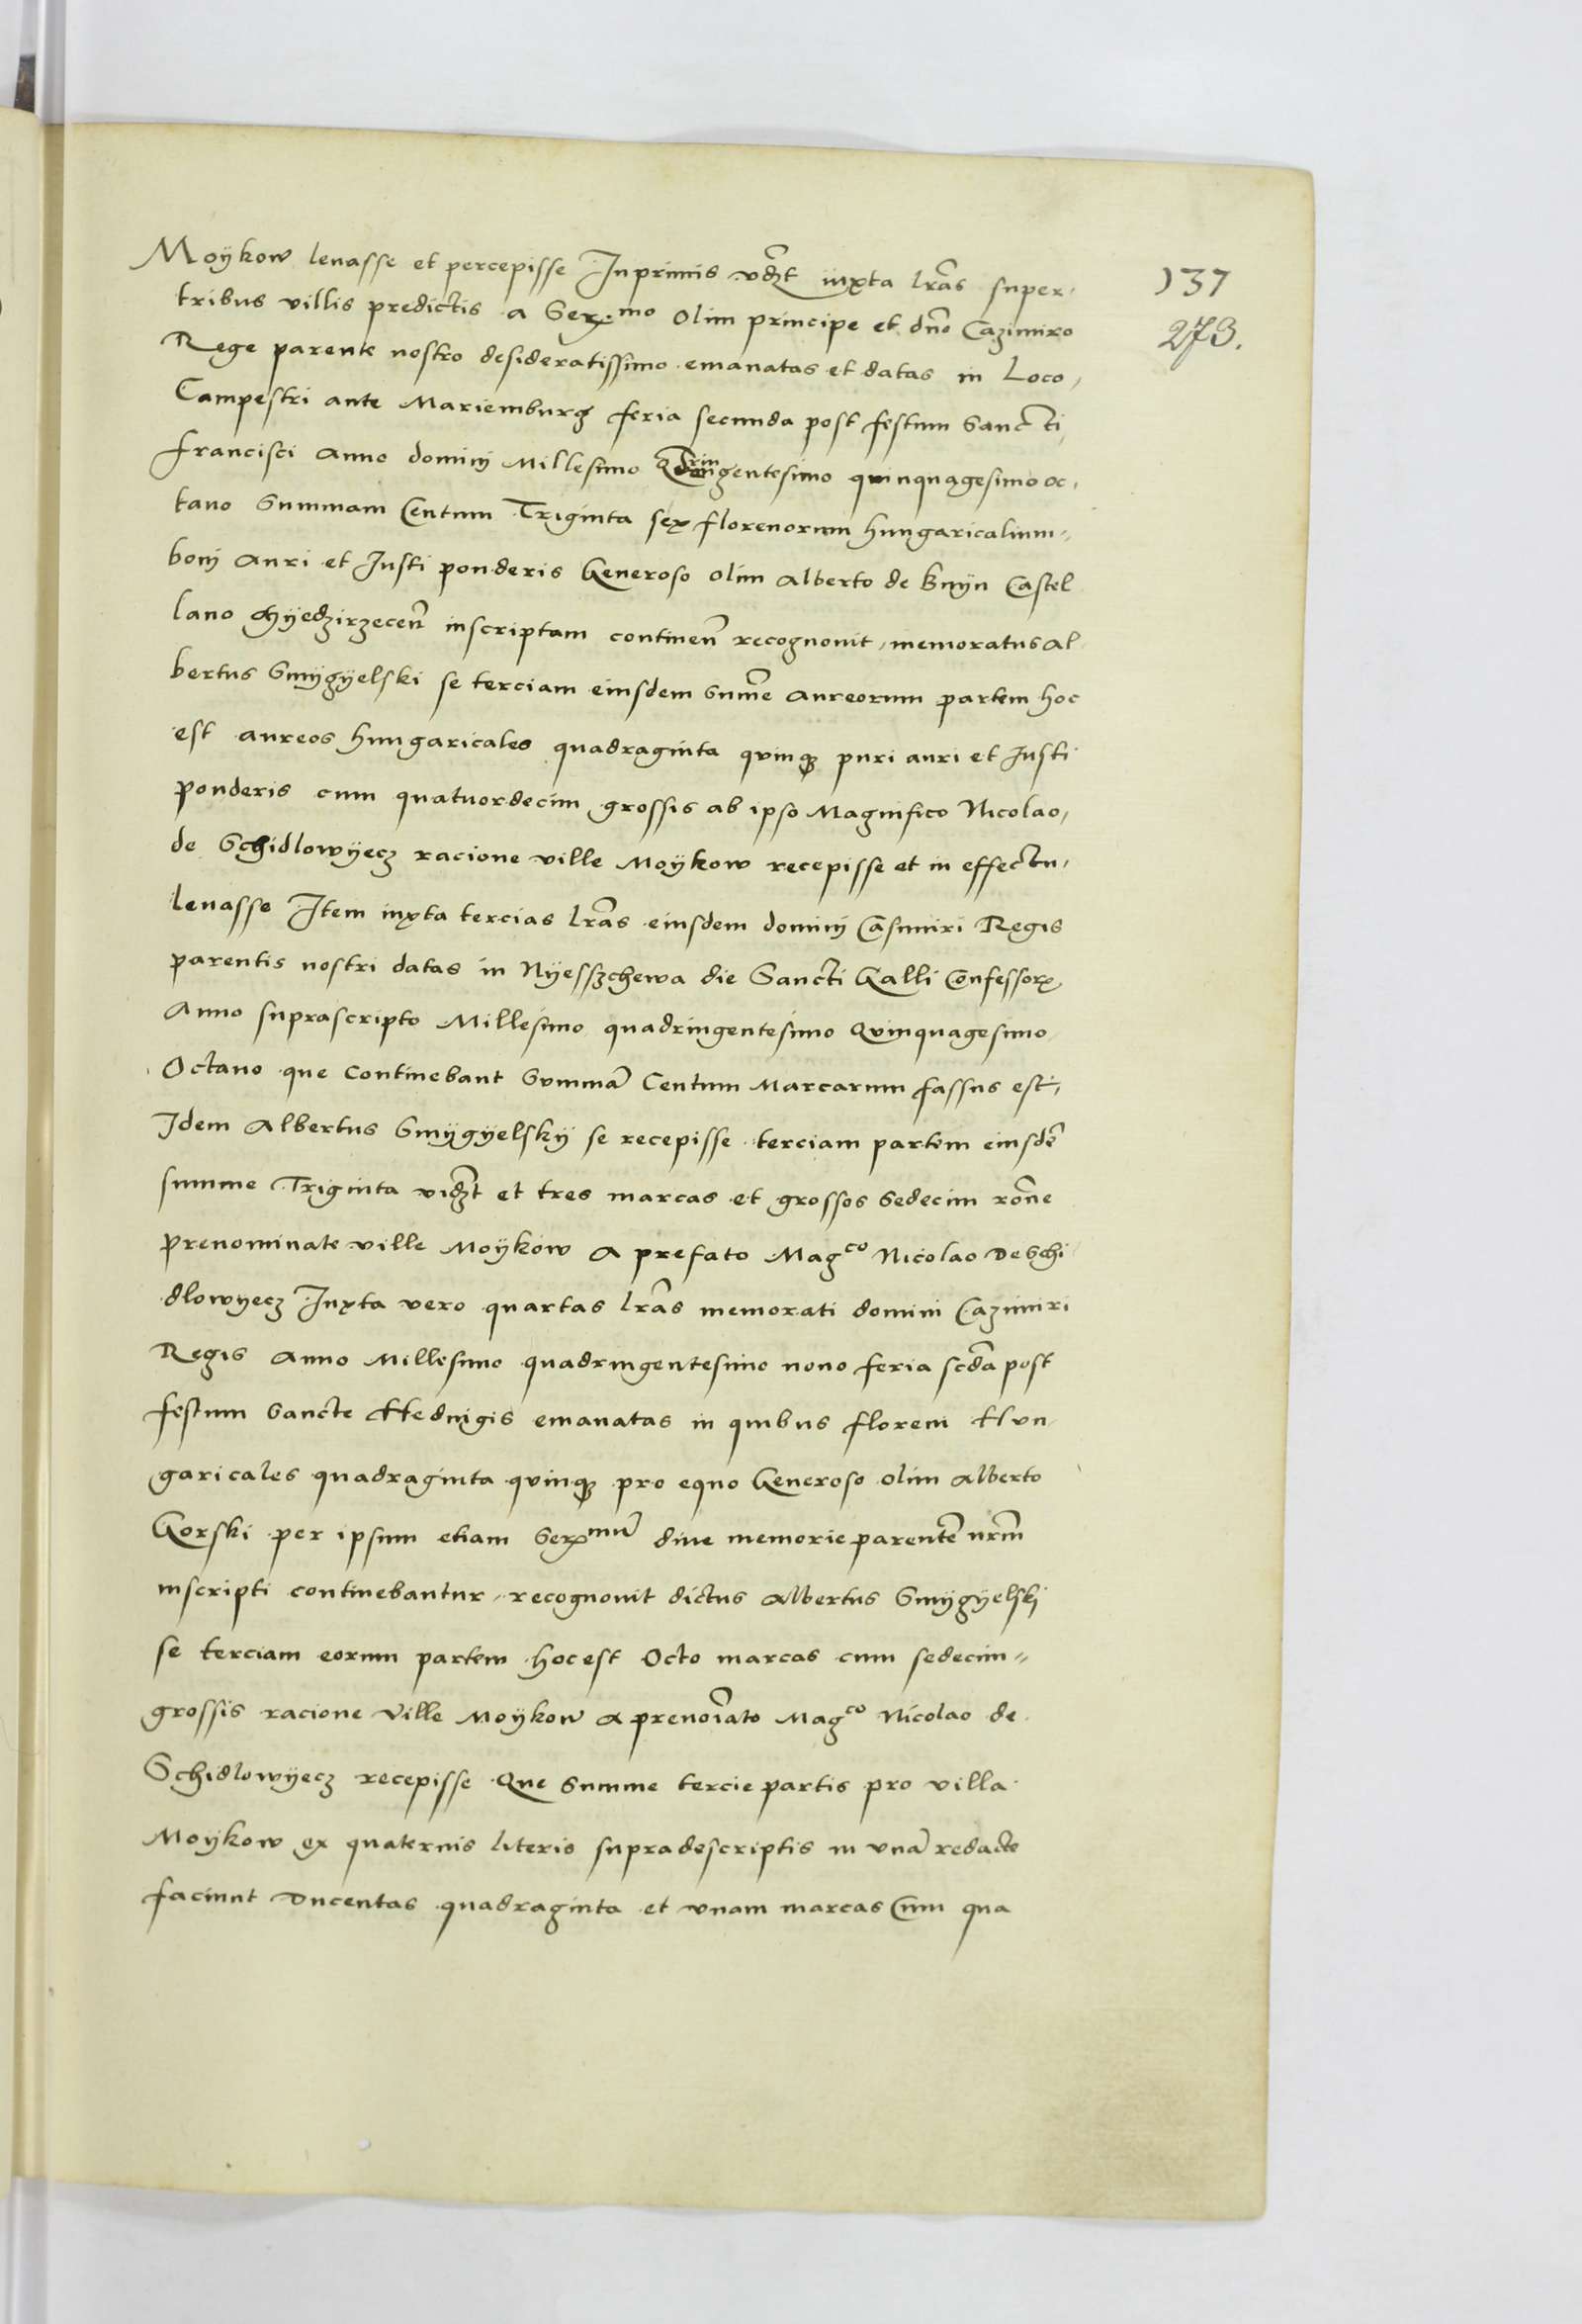 Moÿkow leuasse et percepisse Inprimis vdzt iuxta lras super
137
tribus villis predictis a Sermo olim principe et dno Cazimiro
273.
Rege parente nostro desideratissimo emanatas et datas in Loco,
Campestri ante Mariemburg feria secunda post festum Sancti,
francisci Anno domini Millesimo Qdringentesimo quinquagesimo oc,
tauo Summam Centum Triginta sex florenorum hungaricalium,,
boni Auri et Iusti ponderis Generoso olim Alberto de Kmÿn Castel
lano Myedzirzecen inscriptam continen recognouit, memoratus Al
bertus Smÿgÿelski se terciam eiusdem Summe Aureorum partem hoc
est aureos hungaricales quadraginta quinque puri auri et Iusti
ponderis cum quatuordecim grossis ab ipso Magnifico Nicolao,
de Schidlowÿecz racione ville Moÿkow recepisse et in effectu,
leuasse Item iuxta tercias lras eiusdem domini Casimiri Regis
parentis nostri datas in Nÿesszchewa die Sancti Galli Confessorx
Anno suprascripto Millesimo quadringentesimo Quinquagesimo
Octauo que continebant Summa Centum Marcarum fassus est,
Idem Albertus Smÿgÿelskÿ se recepisse terciam partem eiusde
summe Triginta vidzt et tres marcas et grossos Sedecim rone
prenominate ville Moÿkow a prefato Magco Nicolao De Schi
dlowyecz Iuxta vero quartas lras memorati domini Cazimiri
Regis Anno Millesimo quadringentesimo nono feria scda post
festum Sancte Heduigis emanatas in quibus floreni Hun
garicales quadraginta quinque pro equo Generoso olim Alberto
Gorski per ipsum etiam Sermu diue memorie parente nrm
inscripti continebantur,, recognouit dictus Albertus Smÿgÿelski
se terciam eorum partem hoc est Octo marcas cum sedecim,,
grossis racione Ville Moÿkow a prenoiato Magco Nicolao de
Schidlowÿecz recepisse Que Summe tercie partis pro villa
Moÿkow ex quaternis literis supradescriptis in vna redacte
faciunt Ducentas quadraginta et vnam marcas Cum qua